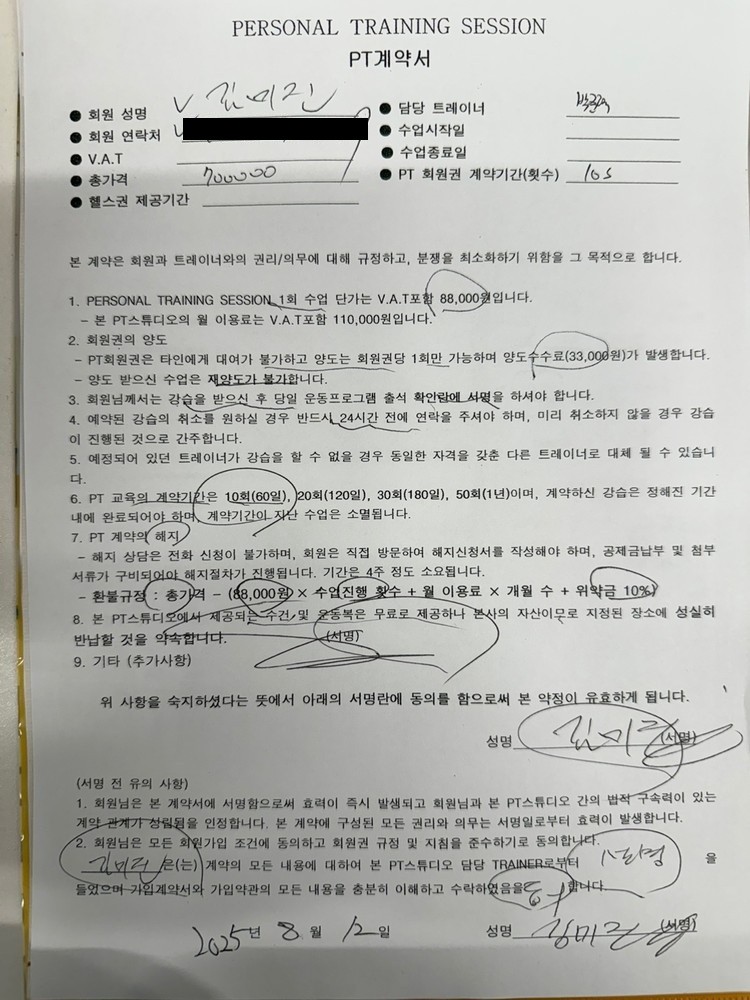 PERSONAL TRAINING SESSION
PT계약서
● 회원 성명 김미진
● 담당 트레이너
● 회원 연락처
● 수업시작일
● V.A.T
● 수업종료일
● 총가격 700000
● PT 회원권 계약기간(횟수) 10s
● 헬스권 제공기간
본 계약은 회원과 트레이너와의 권리/의무에 대해 규정하고, 분쟁을 최소화하기 위함을 그 목적으로 합니다.
1. PERSONAL TRAINING SESSION 1회 수업 단가는 V.A.T포함 88,000원입니다.
- 본 PT스튜디오의 월 이용료는 V.A.T포함 110,000원입니다.
2. 회원권의 양도
- PT회원권은 타인에게 대여가 불가하고 양도는 회원권당 1회만 가능하며 양도수수료(33,000원)가 발생합니다.
- 양도 받으신 수업은 재양도가 불가합니다.
3. 회원님께서는 강습을 받으신 후 당일 운동프로그램 출석 확인란에 서명을 하셔야 합니다.
4. 예약된 강습의 취소를 원하실 경우 반드시 24시간 전에 연락을 주셔야 하며, 미리 취소하지 않을 경우 강습
이 진행된 것으로 간주합니다.
5. 예정되어 있던 트레이너가 강습을 할 수 없을 경우 동일한 자격을 갖춘 다른 트레이너로 대체 될 수 있습니
다.
6. PT 교육의 계약기간은 10회(60일), 20회(120일), 30회(180일), 50회(1년)이며, 계약하신 강습은 정해진 기간
내에 완료되어야 하며, 계약기간이 지난 수업은 소멸됩니다.
7. PT 계약의 해지
- 해지 상담은 전화 신청이 불가하며, 회원은 직접 방문하여 해지신청서를 작성해야 하며, 공제금납부 및 첨부
서류가 구비되어야 해지절차가 진행됩니다. 기간은 4주 정도 소요됩니다.
- 환불규정 : 총가격 - (88,000원 × 수업진행 횟수 + 월 이용료 × 개월 수 + 위약금 10%)
8. 본 PT스튜디오에서 제공되는 수건 및 운동복은 무료로 제공하나 본사의 자산이므로 지정된 장소에 성실히
반납할 것을 약속합니다. (서명)
9. 기타 (추가사항)
위 사항을 숙지하셨다는 뜻에서 아래의 서명란에 동의를 함으로써 본 약정이 유효하게 됩니다.
성명 김미진 (서명)
(서명 전 유의 사항)
1. 회원님은 본 계약서에 서명함으로써 효력이 즉시 발생되고 회원님과 본 PT스튜디오 간의 법적 구속력이 있는
계약 관계가 성립됨을 인정합니다. 본 계약에 구성된 모든 권리와 의무는 서명일로부터 효력이 발생합니다.
2. 회원님은 모든 회원가입 조건에 동의하고 회원권 규정 및 지침을 준수하기로 동의합니다.
김미진 은(는) 계약의 모든 내용에 대하여 본 PT스튜디오 담당 TRAINER로부터 설명 을
들었으며 가입계약서와 가입약관의 모든 내용을 충분히 이해하고 수락하였음을 동의 합니다.
2025년 8 월 12 일 성명 김미진 (서명)